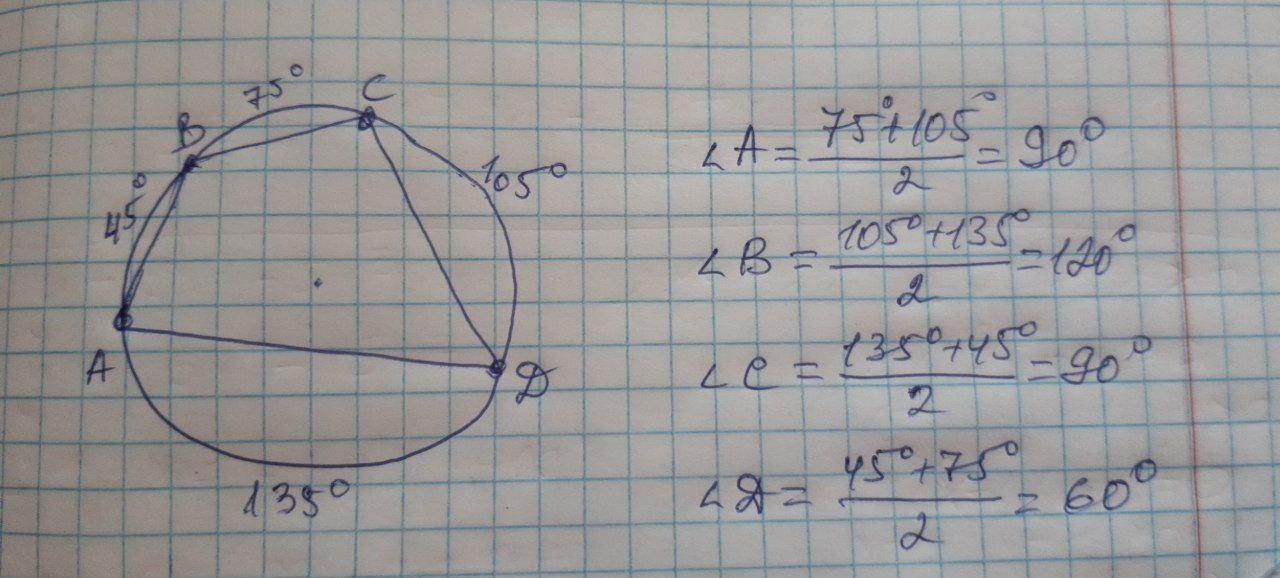 75°
C
B
45°
105°
A
D
135°
∠A = (75°+105°)/2 = 90°
∠B = (105°+135°)/2 = 120°
∠C = (135°+45°)/2 = 90°
∠D = (45°+75°)/2 = 60°